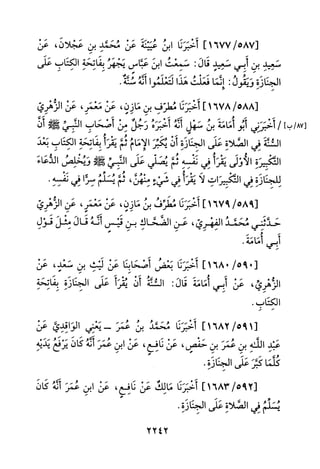 [١٦٧٧/٥٨٧] أَخْبَرَنَا ابنُ عُيَيْنَةَ عَنْ مُحَمَّدِ بنِ عَجْلانَ، عَنْ
سَعِيدِ بنِ أَبِي سَعِيدٍ قَالَ: سَمِعْتُ ابنَ عَبَّاسٍ يَجْهَرُ بِفَاتِحَةِ الكِتَابِ عَلَى
الجِنَازَةِ وَيَقُولُ: إِنَّمَا فَعَلْتُ هَذَا لِتَعْلَمُوا أَنَّهُ سُنَّةٌ.
[١٦٧٨/٥٨٨] أَخْبَرَنَا مُطَرِّفُ بنُ مَازِنٍ، عَنْ مَعْمَرٍ، عَنِ الزُّهْرِيِّ
[٨٧/ب] / أَخْبَرَنِي أَبُو أُمَامَةَ بنُ سَهْلٍ أَنَّهُ أَخْبَرَهُ رَجُلٌ مِنْ أَصْحَابِ النَّبِيِّ ﷺ أَنَّ
السُّنَّةَ فِي الصَّلاةِ عَلَى الجِنَازَةِ أَنْ يُكَبِّرَ الإِمَامُ ثُمَّ يَقْرَأُ بِفَاتِحَةِ الكِتَابِ بَعْدَ
التَّكْبِيرَةِ الأُوْلَى يَقْرَأُ فِي نَفْسِهِ ثُمَّ يُصَلِّي عَلَى النَّبِيِّ ﷺ وَيُخْلِصُ الدُّعَاءَ
لِلجِنَازَةِ فِي التَّكْبِيرَاتِ لَا يَقْرَأُ فِي شَيْءٍ مِنْهُنَّ، ثُمَّ يُسَلِّمُ سِرًّا فِي نَفْسِهِ.
[١٦٧٩/٥٨٩] أَخْبَرَنَا مُطَرِّفُ بنُ مَازِنٍ، عَنْ مَعْمَرٍ، عَنِ الزُّهْرِيِّ
حَدَّثَنِي مُحَمَّدُ الفِهْرِيُّ، عَنِ الضَّحَّاكِ بنِ قَيْسٍ أَنَّهُ قَالَ مِثْلَ قَوْلِ
أَبِي أُمَامَةَ.
[١٦٨٠/٥٩٠] أَخْبَرَنَا بَعْضُ أَصْحَابِنَا عَنْ لَيْثِ بنِ سَعْدٍ، عَنِ
الزُّهْرِيِّ، عَنْ أَبِي أُمَامَةَ قَالَ: السُّنَّةُ أَنْ يُقْرَأَ عَلَى الجِنَازَةِ بِفَاتِحَةِ
الكِتَابِ.
[١٦٨٢/٥٩١] أَخْبَرَنَا مُحَمَّدُ بنُ عُمَرَ ــ يَعْنِي الوَاقِدِيَّ عَنْ
عَبْدِ اللَّهِ بنِ عُمَرَ بنِ حَفْصٍ، عَنْ نَافِعٍ، عَنْ ابنِ عُمَرَ أَنَّهُ كَانَ يَرْفَعُ يَدَيْهِ
كُلَّمَا كَبَّرَ عَلَى الجِنَازَةِ.
[١٦٨٣/٥٩٢] أَخْبَرَنَا مَالِكٌ عَنْ نَافِعٍ، عَنْ ابنِ عُمَرَ أَنَّهُ كَانَ
يُسَلِّمُ فِي الصَّلاةِ عَلَى الجِنَازَةِ.
٢٢٤٢